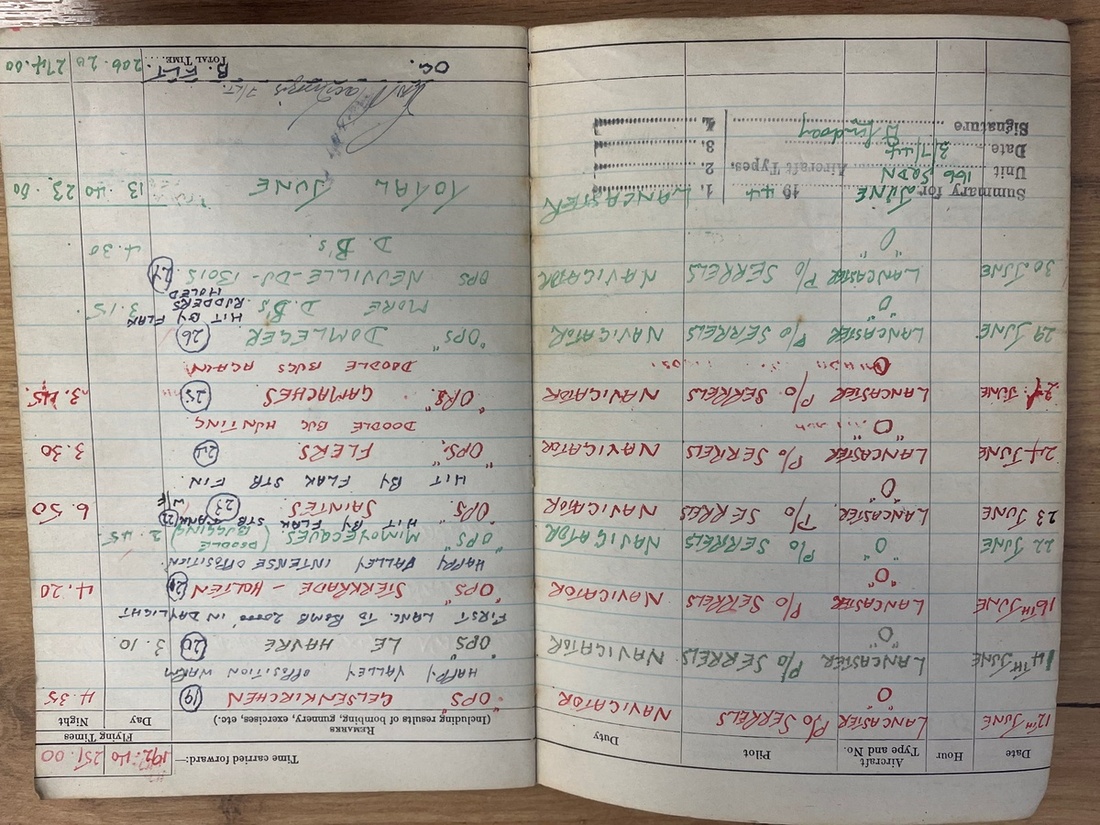 Date Hour Aircraft Type and No. Pilot Duty
12TH JUNE LANCASTER P/O SERRELS NAVIGATOR
"O"
14TH JUNE LANCASTER P/O SERRELS NAVIGATOR
"O"
16TH JUNE LANCASTER P/O SERRELS NAVIGATOR
"O"
22 JUNE "O" P/O SERRELS NAVIGATOR
23 JUNE LANCASTER P/O SERRELS NAVIGATOR
"O"
24 JUNE LANCASTER P/O SERRELS NAVIGATOR
"O"
27 JUNE LANCASTER P/O SERRELS NAVIGATOR
"O"
29 JUNE LANCASTER P/O SERRELS NAVIGATOR
"O"
30 JUNE LANCASTER P/O SERRELS NAVIGATOR
"O"
Summary for JUNE 1944 1. LANCASTER
Unit 166 SQDN Aircraft Types. 2.
Date 3/7/44 3.
Signature 4.
Time carried forward:— 192.40 251.00
REMARKS
(Including results of bombing, gunnery, exercises, etc.)
Flying Times
Day Night
"OPS" GELSENKIRCHEN (19) 4.35
HAPPY VALLEY OPPOSITION WARM
"OPS" LE HAVRE (20) 3.10
FIRST LANC. TO BOMB 20000' IN DAYLIGHT
"OPS" STERKRADE - HOLTEN (21) 4.20
HAPPY VALLEY INTENSE OPPOSITION
"OPS" MIMOYECQUES (DOODLE BUGGING) (22) 2.45
HIT BY FLAK STB TANK
"OPS" SAINTES (23) 6.50
HIT BY FLAK STB FIN
"OPS" FLERS (24) 3.30
DOODLE BUG HUNTING
"OPS" GAMACHES (25)
DOODLE BUGS AGAIN
"OPS" DOMLEGER (26)
HIT BY FLAK
MORE D.B's RUDDERS HOLED 3.15
OPS NEUVILLE-DU-BOIS (27)
D.B's 4.30
TOTAL JUNE 13.40 23.00
F/LT.
OC. B. FLT
TOTAL TIME 206.20 274.00